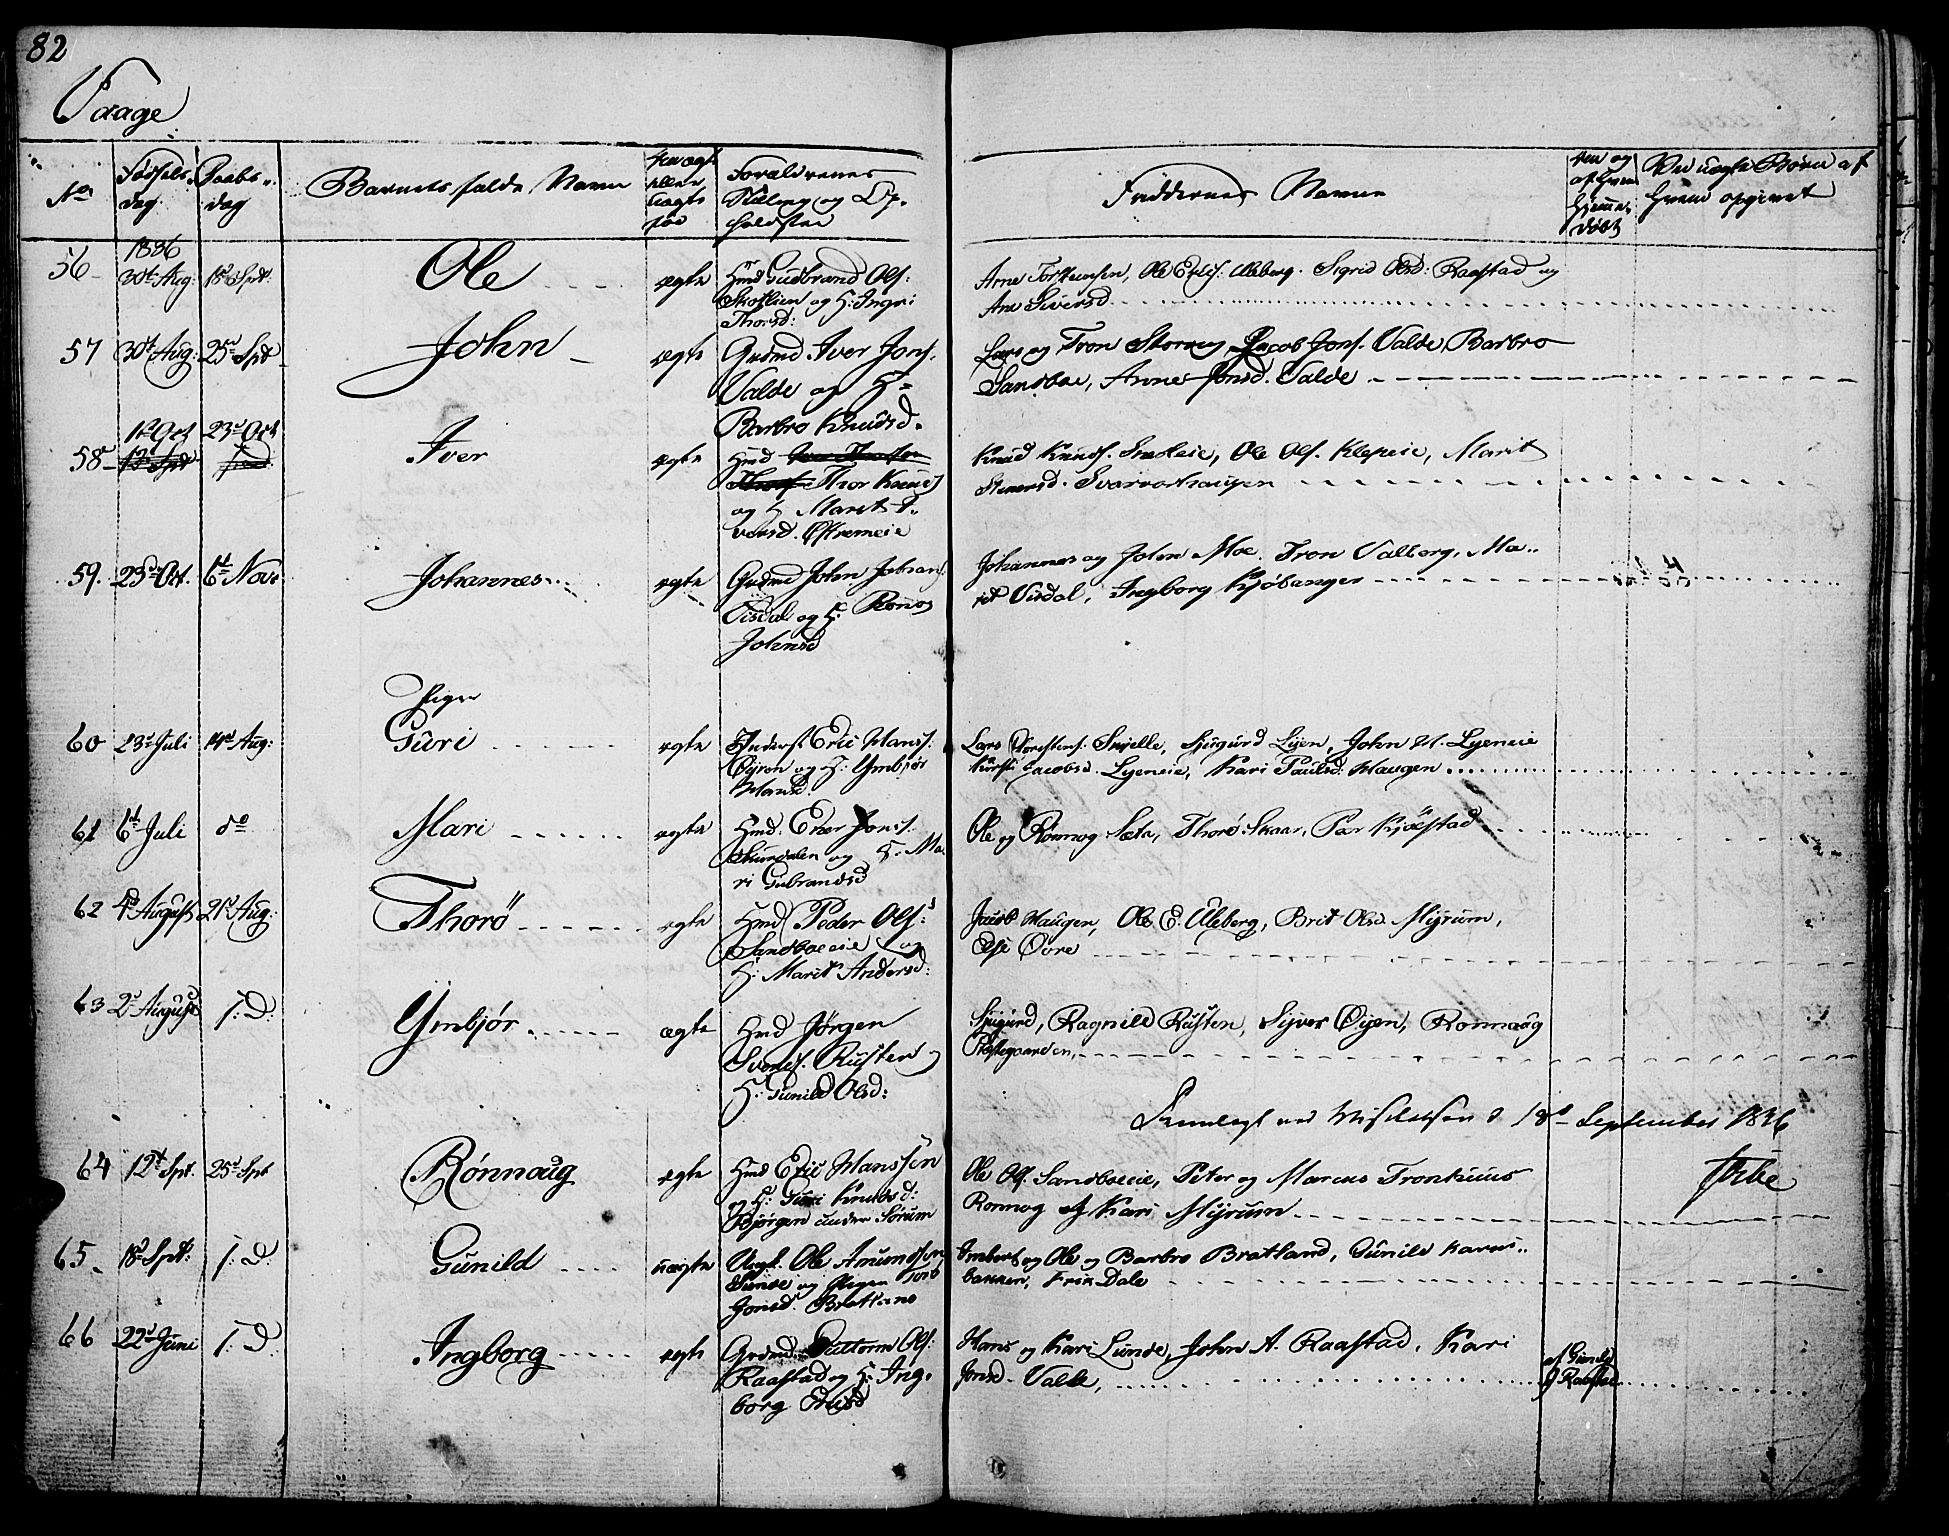 82
Vaage
No
Fødsels dag
Daabs dag
Barnets fulde Navn
ægte eller uægte
Forældrenes Stilling og Opholdsted
Faddernes Navne
Ved uægte Børn af hvem opgivet
1836
56 30te Aug: 18d Spt: Ole ægte Hmd Gudbrand Ols:
Skotlien og H: Ingri
Thorsd:
Arne Torstensen, Ole Erics: Uleberg. Sigrid Olsd: Raastad og
Ane Siversd
57 30t Aug: 25d Spt John ægte Grdmd Iver Jons.
Valde og H:
Barbro Knudsd.
Lars og Tron Storvig Jacob Jons. Valde, Barbro
Sandboe, Anne Jonsd. Valde
58 12t Spt 1t Oct 23d Oct Iver ægte Hmd Thor Knuds
og H Marit I-
versd. Øfremeie
Knud Knuds. Snerleie, Ole Ols. Klepeie, Marit
Stenersd. Svarvarhaugen
59. 23d Oct. 6t Nov: Johannes ægte Grdmd John Johans.
Visdal og H: Rønog
Johnsd
Johannes og John Moe. Tron Valberg, Ma-
rit Visdal, Ingborg Kjøbanger
Piger
60 23d Juli 14d Aug: Guri ægte Inderst Eric Hanss.
Øyron og H: Ymbjør
Hansd.
Lars Torstens. Snielle, Sjugurd Lyen, John H. Lyeneie
Kirsti Jacobsd. Lyeneie, Kari Paulsd. Haugen
61 6t Juli do Mari ægte Hmd. Ener Jonss.
og H: Ma-
ri Gubrandsd
Ole og Rönnog Sæta, Thorö Skaar, Per Kjöestad
62 4d August 21d Aug: Thorö ægte Hmd Peder Ols:
Sandboeeie og
H: Marit Andersd:
Jacob Haugen, Ole E. Uleberg, Brit Olsd Myrum,
Øvre
63 2d August I: D: Ymbjør ægte Hmd Jørgen
Svends. Rusten og
H: Gunild Olsd:
Sjugurd, Ragnild Rusten, Syver Øyen, Ronnaug
Prestegaarden,
Fremlagt ved Visitatsen d 18d September 1836
64 12t Spt. 25d Spt Rønnaug ægte Hmd Eric Hanssen
og H: Guri Knudsd:
Bjørgen under Sørum
Ole Ols. Sandboeeie, Peter og Marcus Tronhuus
Ronnog og Kari Myrum
65 18d Spt: I: D: Gunild uægte Ungk. Ole Amundsen
Sunde og Pigen Torb
Jonsd. Bratland
Imbert og Ole og Barbro Bratland, Gunild Karus-
bakken, Frik Dale
66 22d Juni I: D: Ingborg ægte Grdmd. Guttorm Ols:
Raastad og H: Ing-
borg Ericsd
Hans og Kari Lunde, John A. Raastad, Kari
Jonsd. Valde,
af Gunild
Raastad